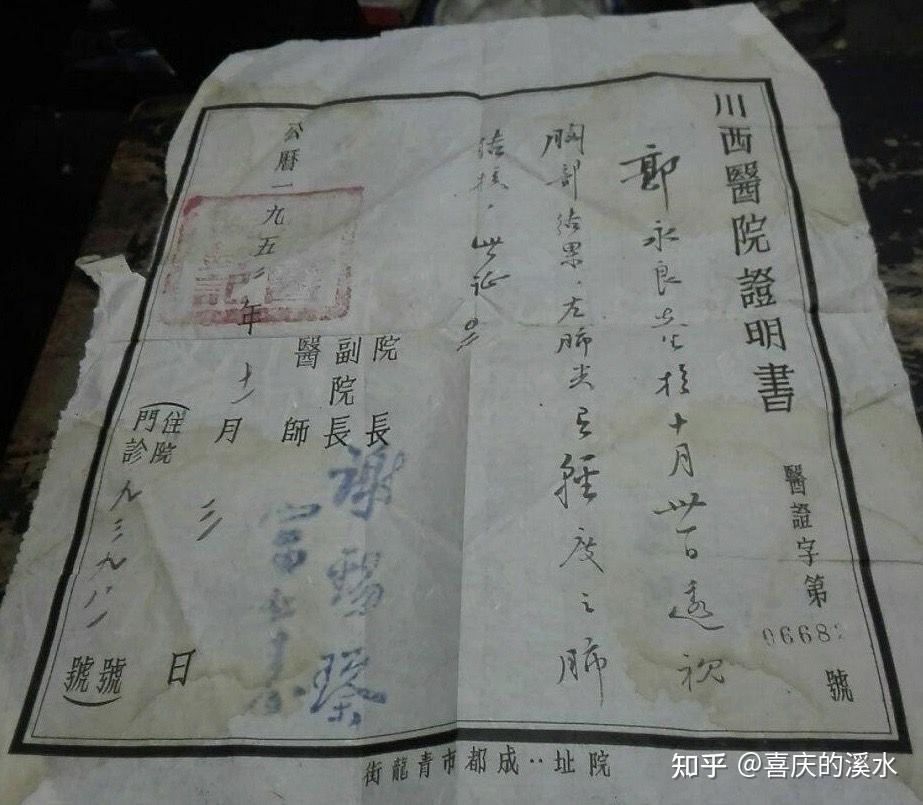 川西醫院證明書
醫證字第0668號
郭永良先生於十月卅一日透視
胸部結果，左肺尖有輕度之肺
结核，此证
院長
副院長
醫師
謝錫瑹
公曆一九五二年十一月三日
(住院號
門診九三九八八號)
院址：成都市青龍街
知乎 @喜庆的溪水